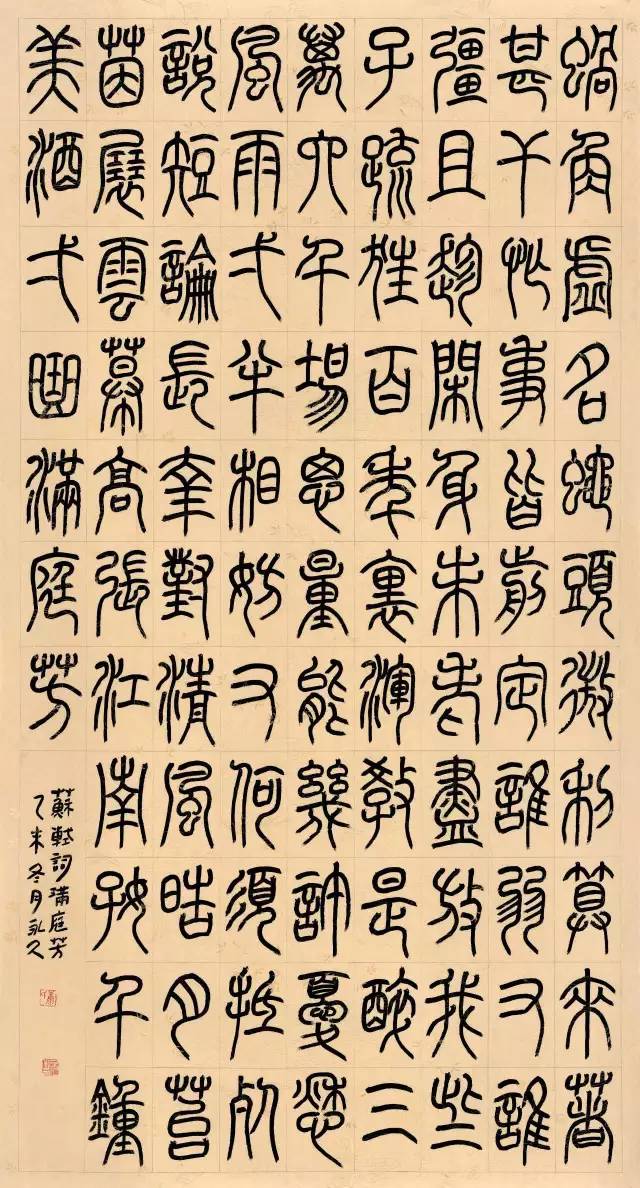 蝸角虛名蠅頭微利算來著
甚干忙事皆前定誰弱又誰
彊且趁閑身未老盡放我些
子疏狂百年裏渾教是醉三
萬六千場思量能幾許憂愁
風雨弌半相妨又何須抵死
說短論長幸對清風皓月苔
茵展雲幕高張江南好千鐘
美酒弌曲滿庭芳
蘇軾詞滿庭芳
乙未冬月永久